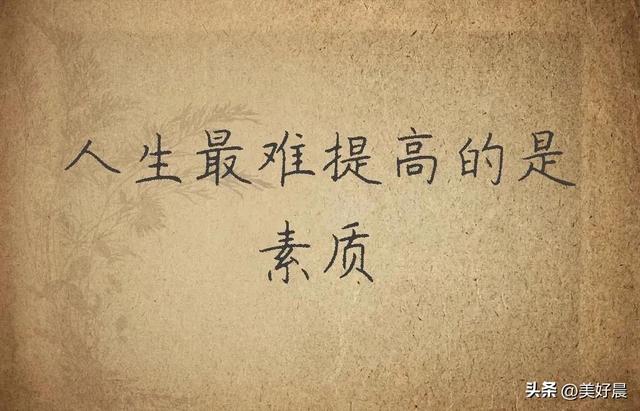 人生最难提高的是
素质
头条 @美好晨